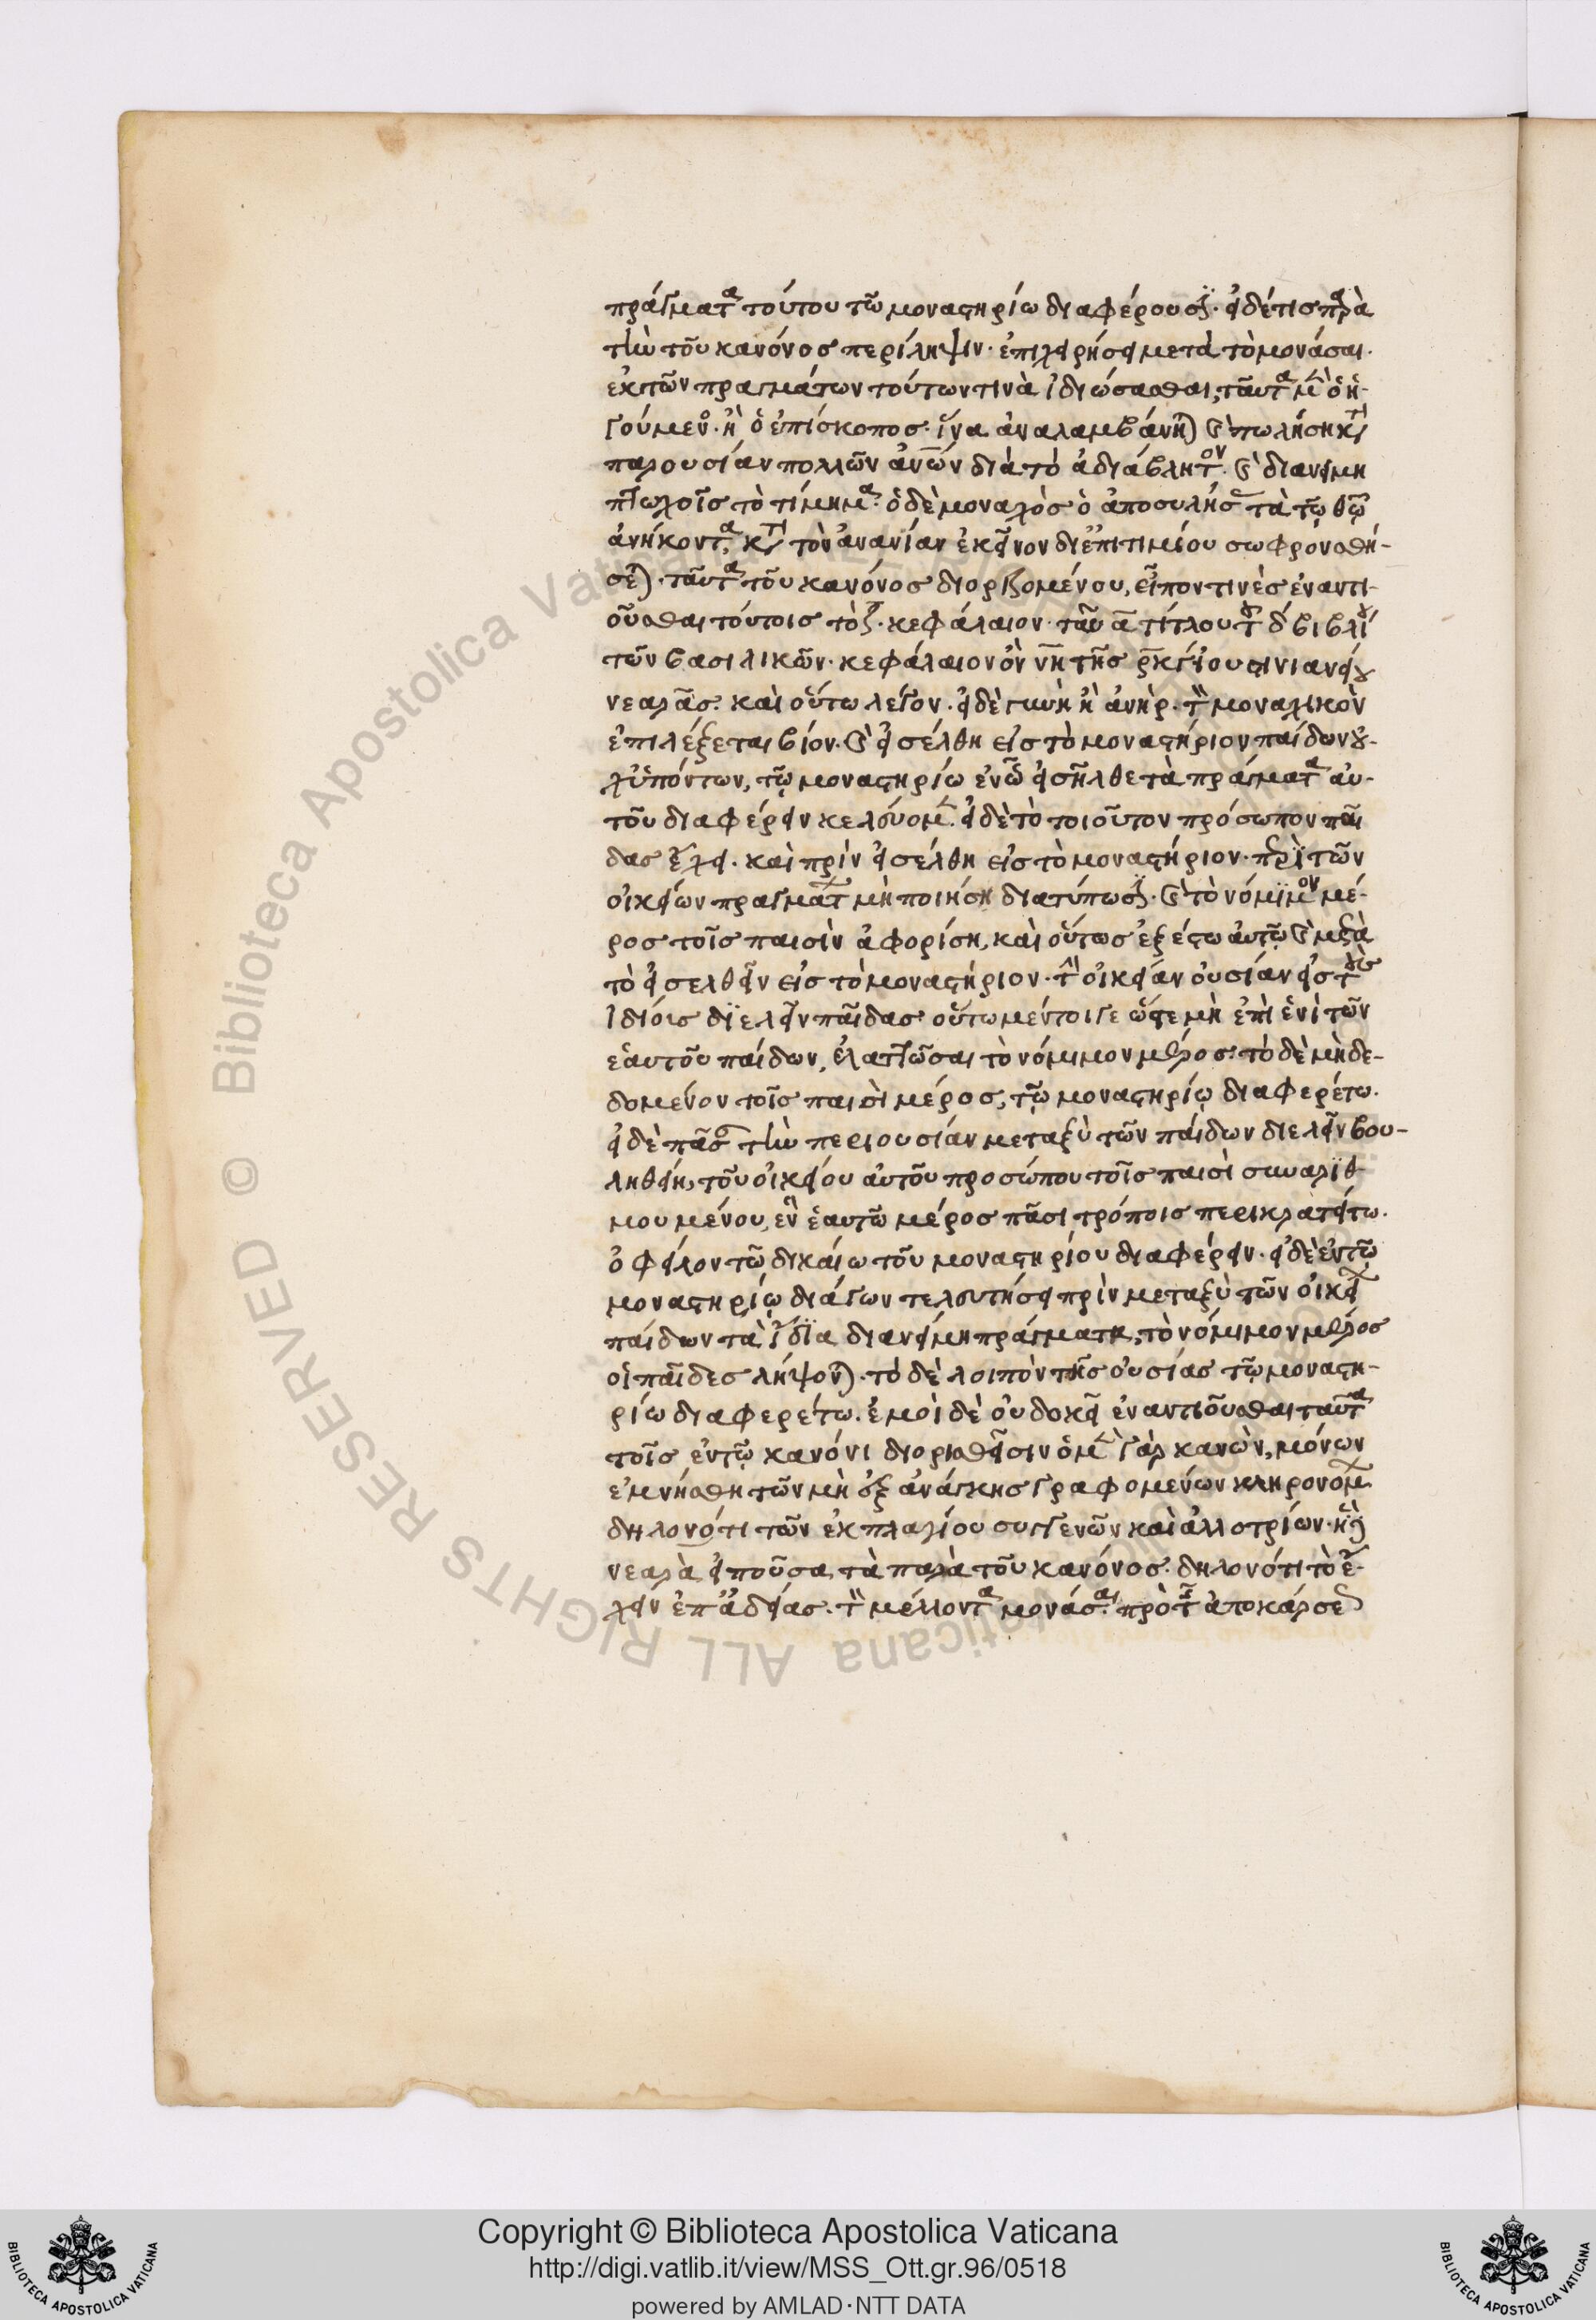 πράγματα τούτου τῶ μοναστηρίω διαφέρουσι. εἰ δέ τις παρὰ
τὴν τοῦ κανόνος περίληψιν. ἐπιχειρήσει μετὰ τὸ μονάσαι.
ἐκ τῶν πραγμάτων τούτων τινὰ ἰδιώσασθαι, ταῦτα μὲν ὁ ἡ-
γούμενος. ἢ ὁ ἐπίσκοπος. ἵνα ἀναλαμβάνηται καὶ πωλήση κατὰ
παρουσίαν πολλῶν ἀνῶν διὰ τὸ ἀδιάβλητον. καὶ διανείμη
πτωχοῖς τὸ τίμημα. ὁ δὲ μοναχὸς ὁ ἀποσυλήσας τὰ τῷ θῶ
ἀνήκοντα, κατὰ τὸν ἀνανίαν ἐκεῖνον δι ἐπιτιμίου σωφρονισθή-
σεται. ταῦτα τοῦ κανόνος διοριζομένου, εἶπον τινὲς ἐναντι-
οῦσθαι τούτοις τὸ ζ. κεφάλαιον τοῦ α τίτλου τοῦ δ βιβλίου
τῶν βασιλικῶν. κεφάλαιον ὂν νη τῆς ρκγ ἰουστινιανείου
νεαρᾶς. καὶ οὕτω λέγον. εἰ δὲ γυνὴ ἢ ἀνὴρ. τὸν μοναχικὸν
ἐπιλέξεται βίον. καὶ εἰσέλθη εἰς τὸ μοναστήριον παίδων οὐ-
χ ὑπόντων, τῷ μοναστηρίω ἐν ὧ εἰσῆλθε τὰ πράγματα αὐ-
τοῦ διαφέρειν κελεύομεν. εἰ δὲ τὸ τοιοῦτον πρόσωπον παῖ
δας ἔχει. καὶ πρὶν εἰσέλθη εἰς τὸ μοναστήριον. περὶ τῶν
οἰκείων πραγμάτων μὴ ποιήση διατύπωσιν. καὶ τὸ νόμιμον μέ-
ρος τοῖς παισὶν ἀφορίση, καὶ οὕτως ἐξέστω αὐτῷ καὶ μετὰ
τὸ εἰσελθεῖν εἰς τὸ μοναστήριον. τὴν οἰκείαν οὐσίαν εἰς τοὺς
ἰδίοις διελεῖν παῖδας οὕτω μέντοιγε ὥστε μὴ ἐπὶ ἑνὶ τῶν
ἑαυτοῦ παίδων, ἐλαττῶσαι τὸ νόμιμον μέρος. τὸ δὲ μὴ δε-
δομένον τοῖς παισὶ μέρος, τῷ μοναστηρίῳ διαφερέτω.
εἰ δὲ πᾶσαν τὴν περιουσίαν μεταξὺ τῶν παίδων διελεῖν βου-
ληθείη, τοῦ οἰκείου αὐτοῦ προσώπου τοῖς παισὶ συναριθ
μουμένου, ἓν ἑαυτῶ μέρος πᾶσι τρόποις περικρατείτω.
ὀφεῖλον τῷ δικαίω τοῦ μοναστηρίου διαφέρειν. εἰ δὲ ἐν τῷ
μοναστηρίῳ διάγων τελευτήσει πρὶν μεταξὺ τῶν οἰκείων
παίδων τὰ ἴδια διανείμη πράγματα, τὸ νόμιμον μέρος
οἱ παῖδες λήψονται. τὸ δὲ λοιπὸν τῆς οὐσίας τῷ μοναστη-
ρίω διαφερέτω. ἐμοὶ δὲ οὐ δοκεῖ ἐναντιοῦσθαι ταῦτα
τοῖς ἐν τῷ κανόνι διορισθεῖσιν ὁ μὲν γὰρ κανὼν, μόνων
ἐμνήσθη τῶν μὴ ἐξ ἀνάγκης γραφομένων κληρονόμων
δηλονότι τῶν ἐκ πλαγίου συγγενῶν καὶ ἀλλοτρίων. ἡ δὲ
νεαρὰ εἰποῦσα τὰ παρὰ τοῦ κανόνος. δηλονότι τὸ ἔ-
χειν ἐπ ἀδείας. τὸν μέλλοντα μονάσαι πρὸ τῆς ἀποκάρσεως